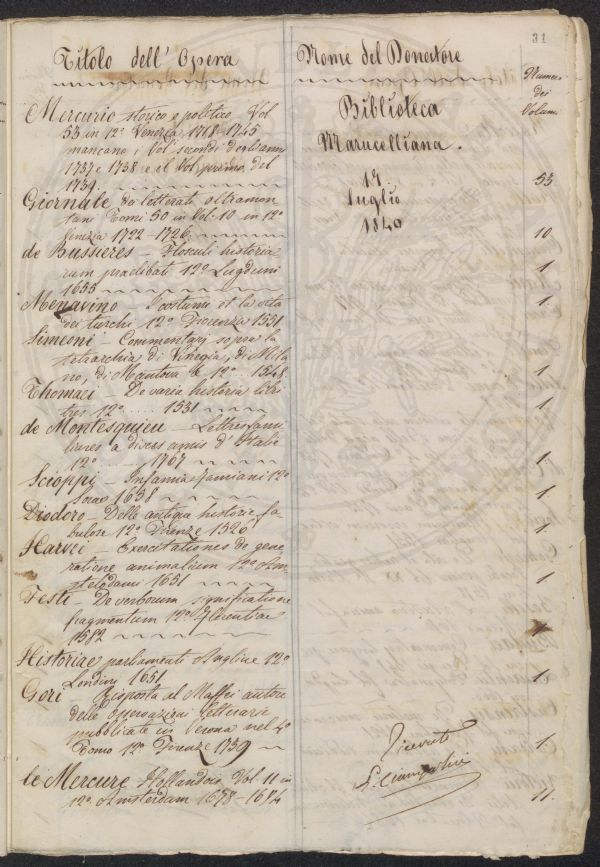 31
Titolo dell' Opera
Nome del Donatore
Numero
dei
Volumi
Mercurio storico e politico Vol
53 in 12º Venezia 1718-1745
mancano i Vol secondi degli anni
1737 e 1738 e il Vol primo del
1739.
Biblioteca
Marucelliana.
17
Luglio
1840
53
Giornale dei letterati oltramon
tani Tomi 50 in Vol. 10 in 12º
Venezia 1722-1726
10
de Bussieres - Flosculi historia
rum praelibati 12º Lugduni
1655
1
Menavino I costumi et la vita
dei turchi 12º Fiorenza 1551
1
Simeoni - Commentarj sopra la
tetrarchia di Vinegia, di Mila
no, di Mantova &c 12º 1548
1
Thomaei - De varia historia libri
tres 12º ..... 1531
1
de Montesquieu - Lettres fami
lieres a divers amis d' Italie
12º ..... 1767
1
Scioppj - Infamia Famiani 12º
Sorae 1658
1
Diodoro - Delle antique historie fa
bulose 12º Firenze 1526
1
Harvei - Exercitationes de gene
ratione animalium 12º Am
stelodami 1651
1
Festi - De verborum significatione
fragmentum 12º Florentiae
1582
1
Historiae parliamenti Angliae 12º
Londini 1651
1
Gori - Risposta al Maffei autore
delle Osservazioni letterarie
pubblicate in Verona nel 4º
Tomo 12º Firenze 1739
1
Ricevuti
le Mercure Hollandois Vol. 11 in
12º Amsterdam 1678-1684
11.